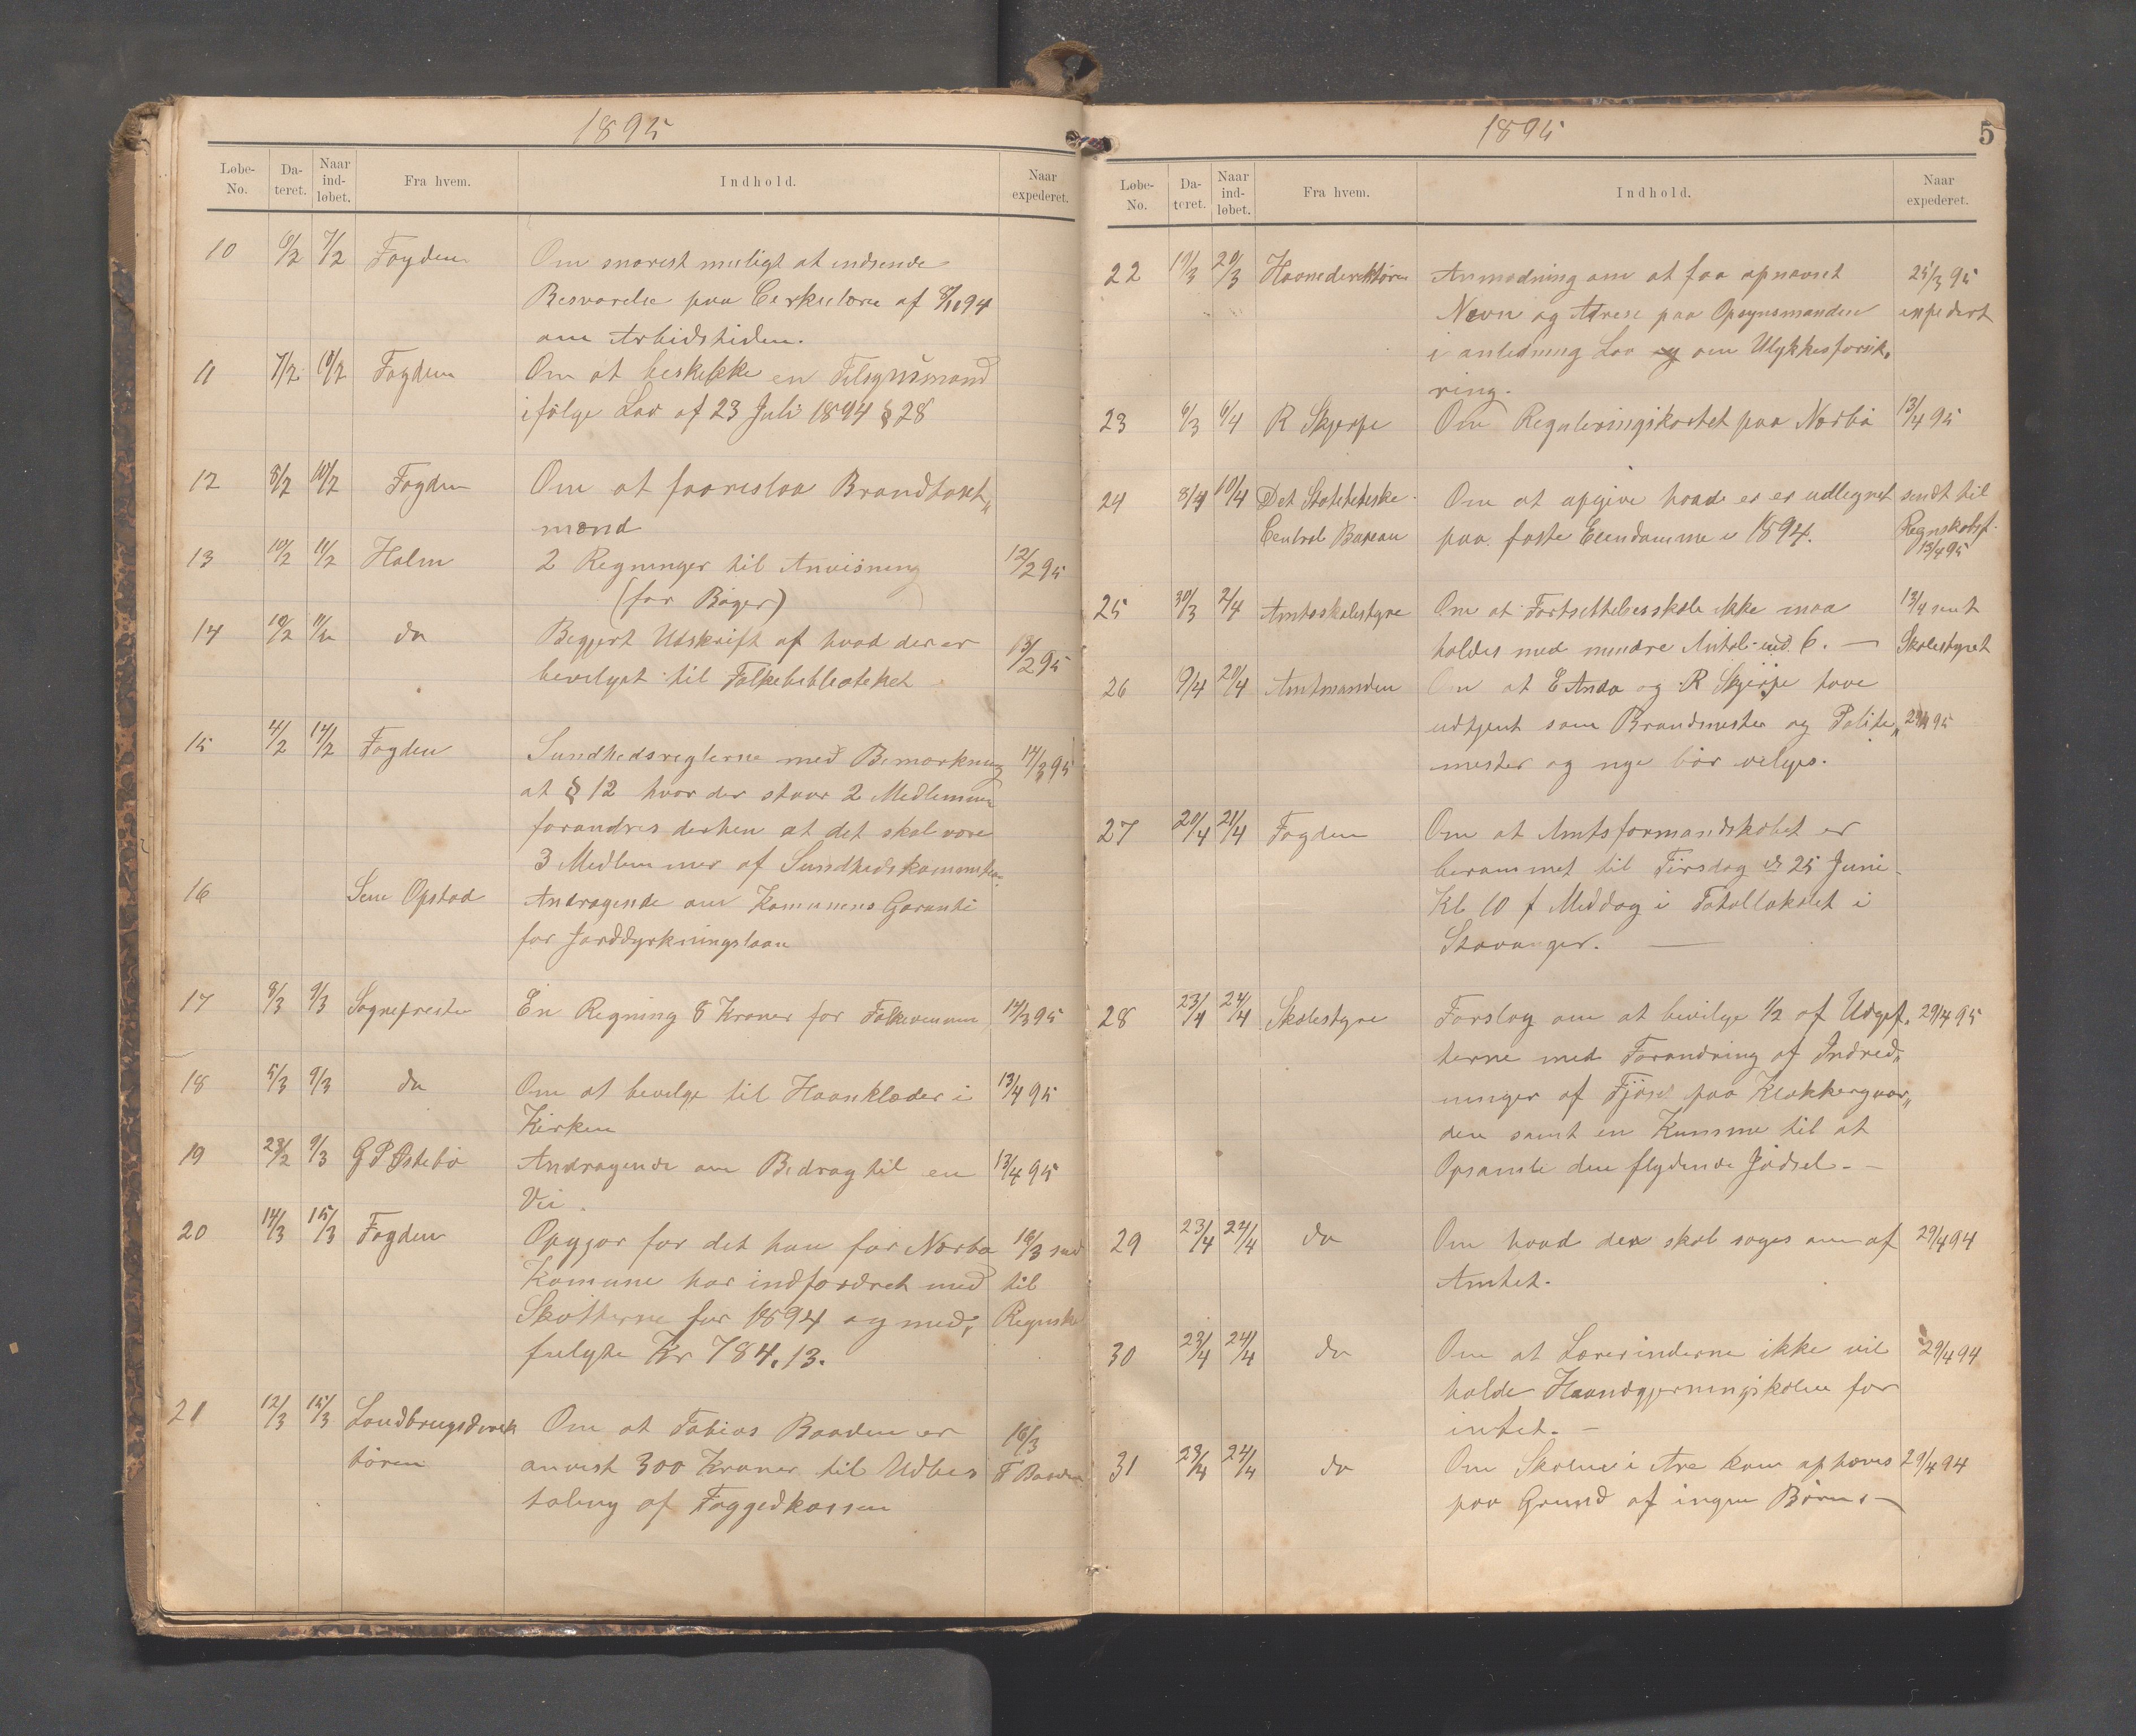 1895
Løbe-No. Dateret. Naar indløbet. Fra hvem. Indhold. Naar expederet.
10 6/2 7/2 Fogden Om snarest muligt at indsende
Besvarelse paa Cirkulære af 8/11 94
om Arbidstiden.
11 7/2 10/2 Fogden Om at beskikke en Tilsynsmand
ifølge Lov af 23 Juli 1894 § 28
12 8/2 10/2 Fogden Om at fooreslaa Brandtaxt„
mænd
13 10/2 11/2 Holm 2 Regninger til Anvisning 12/2 95
(for Bøger)
14 10/2 11/2 do Begjert Udskrift af hvad der er 13/2 95
bevilget til Folkebiblioteket
15 4/2 14/2 Fogden Sundhedsreglerne med Bemærkning 14/3 95
at § 12 hvor der staar 2 Medlemmer
forandres derhen at det skal være
3 Medlemmer af Sundhedskommision.
16 Sem Opstad Andragende om Komunens Garanti
for Jorddyrkningslaan
17 8/3 9/3 Sogneprester En Regning 8 Kroner for Folkevennen 14/3 95
18 5/3 9/3 do Om at bevilge til Haanklæder i 13/4 95
Kirken
19 23/2 9/3 G P Østebø Andragende om Bidrag til en 13/4 95
Vei.
20 14/3 15/3 Fogden Opgjør for det han for Nærbø 16/3 sendt
Komune har indfordret med til
Skatterne for 1894 og med, Regnsk
fulgte Kr 784.13.
21 12/3 15/3 Landbrugsdirek Om at Tobias Braaden er 16/3
tøren anvist 300 Kroner til Udbe= T Braaden
taling af Foggedkassen
1895 5
Løbe-No. Dateret. Naar indløbet. Fra hvem. Indhold. Naar expederet.
22 19/3 20/3 Havnedirektøren Anmodning om at faa opnævnt 25/3 95
Navn og Adrese paa Opsynsmanden expedert
i anledning Lov og om Ulykkesforsik„
ring.
23 6/3 6/4 R Skjerpe Om Reguleringskartet paa Nærbø 13/4 95
24 8/4 10/4 Det Statistiske Om at opgive hvade er er udlegnet sendt til
Central Bureau paa faste Eiendomme i 1894. Regnskabsf. 13/4 95
25 30/3 2/4 Amtsskolestyre Om at Fortsettelsesskole ikke maa 13/4 sent
holdes med mindre Antal end 6. — Skolestyret
26 9/4 20/4 Amtmanden Om at E Anda og R Skjerpe have
udtjent som Brandmester og Politi„ 29/4 95
mester og nye bør velges.
27 20/4 21/4 Fogden Om at Amtsformandskabet er
berammet til Tirsdag d 25 Juni
Kl 10 f Middag i Totallokalet i
Stavanger. —
28 23/4 24/4 Skolestyre Forslag om at bevilge 1/2 af Udgif„ 29/4 95
terne med Forandring af Indred„
ninger af Fjøset paa Klokkergaar„
den samt en Kumme til at
Opsamle den flydende Jødsel. —
29 23/4 24/4 do Om hvad der skal søges om af 29/4 94
Amtet.
30 23/4 24/4 do Om at Lærerinderne ikke vil 29/4 94
holde Haandgjerningskolen for
intet. —
31 23/4 24/4 do Om Skolen i Are kan ophæves 29/4 94
paa Grund af ingen Børn. —